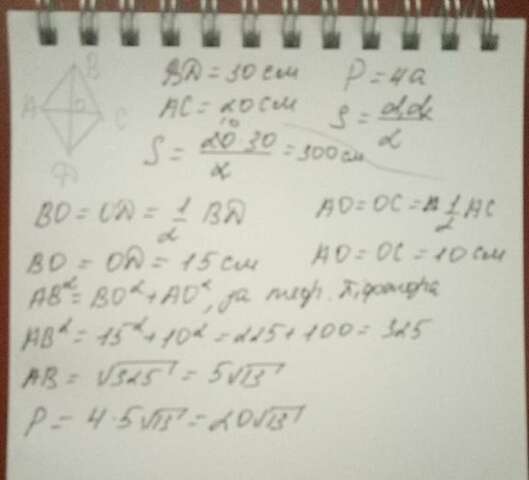 B
A O C
D
BD = 30 см P = 4a
AC = 20 см S = d₁d₂/2
S = 20·30/2 = 300 см
10
BO = OD = 1/2 BD AO = OC = 1/2 AC
BO = OD = 15 см AO = OC = 10 см
AB² = BO² + AO², за теор. Піфагора
AB² = 15² + 10² = 225 + 100 = 325
AB = √325 = 5√13
P = 4·5√13 = 20√13